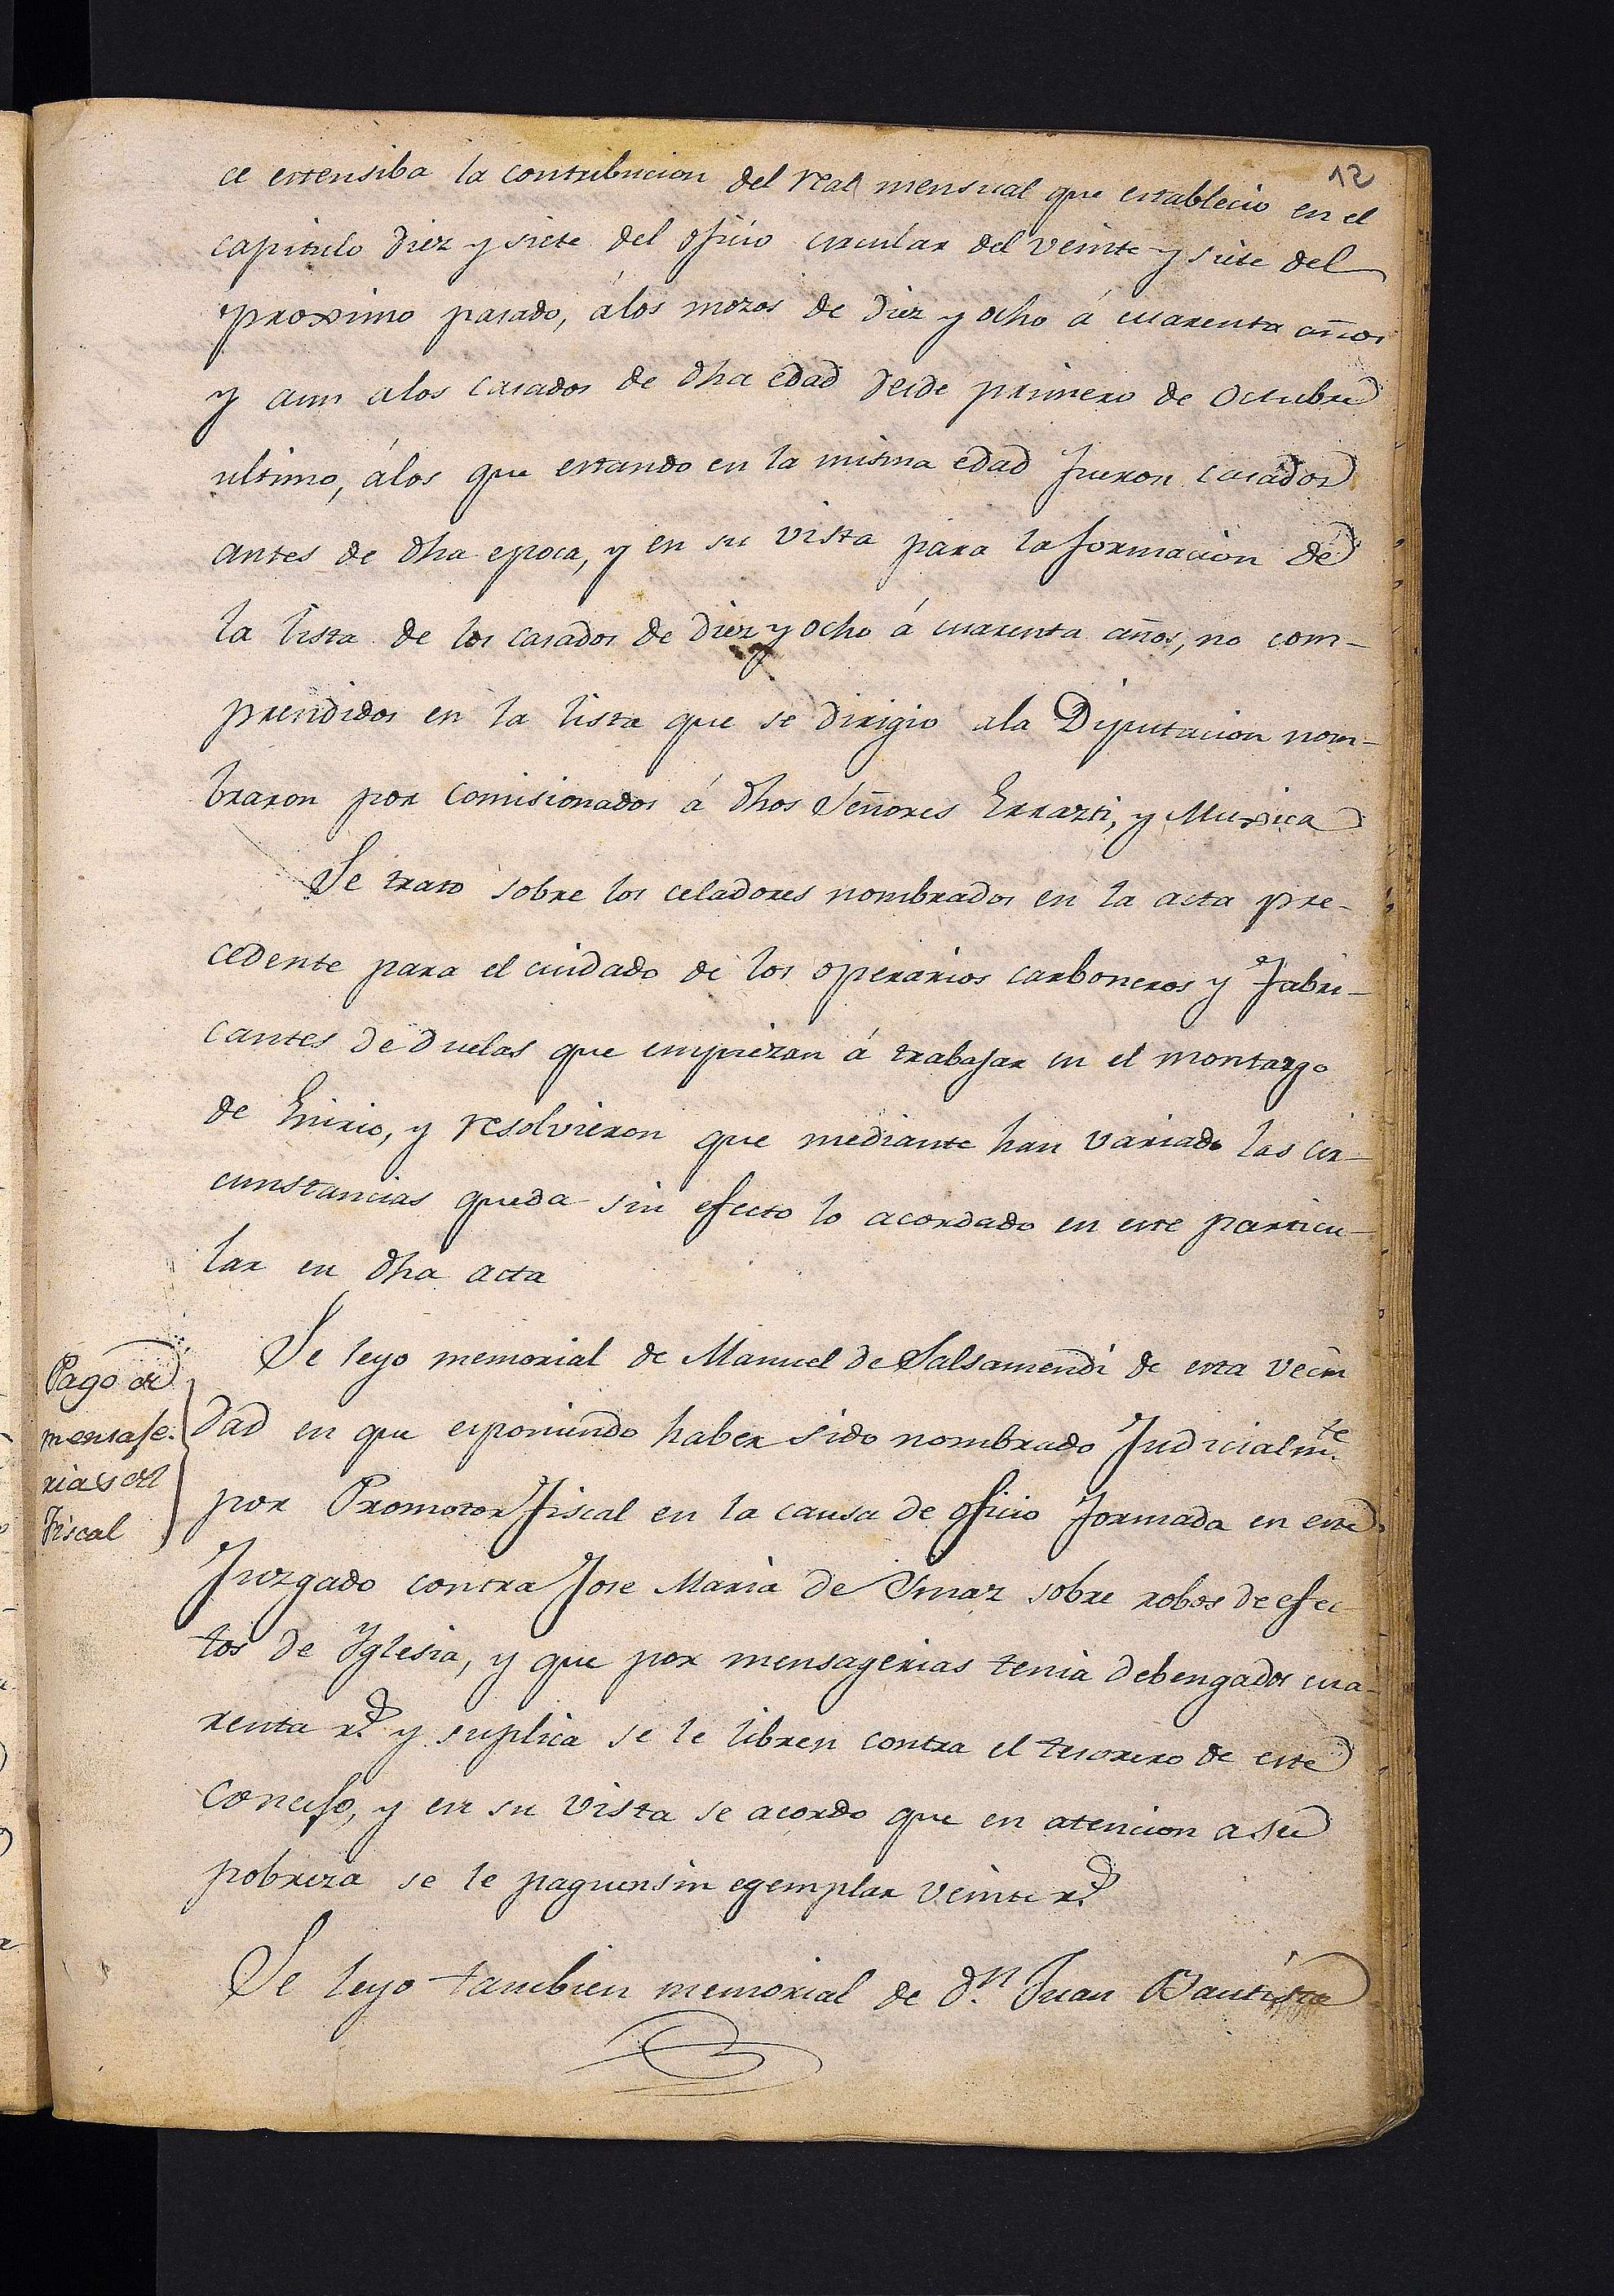 12
ce estensiba la contribucion del real mensual que establecio en el
capitulo diez y siete del oficio circular del veinte y siete del
proximo pasado, álos mozos de diez y ocho á cuarenta años
y aun alos casados de dha edad desde primero de Octubre
ultimo, álos que estando en la misma edad fueron casados
antes de dha epoca, y en su vista para la formacion de
la lista de los casados de diez y ocho á cuarenta años, no com-
prendidos en la lista que se dirigio ala Diputacion nom-
braron por comisionados á dhos Señores Errazti, y Muxica
Se trato sobre los celadores nombrados en la acta pre-
cedente para el cuidado de los operarios carboneros y fabri-
cantes de duelas que empiezan á trabajar en el montazgo
de Enirio, y resolvieron que mediante han variado las cir-
cunstancias queda sin efecto lo acordado en este particu-
lar en dha acta
Pago de
mensaje-
rias del
Fiscal
Se leyo memorial de Manuel de Salsamendi de esta vecin
dad en que esponiendo haber sido nombrado Judicialm.te
por Promotor fiscal en la causa de oficio formada en este
Juzgado contra Jose Maria de Ymaz sobre robos de efec-
tos de Yglesia, y que por mensagerias tenia debengados cua-
renta r.s y suplica se le libren contra el tesorero de este
Concejo, y en su vista se acordo que en atencion a su
pobreza se le paguen sin egemplar veinte r.s
Se leyo tambien memorial de d.n Juan Bautista